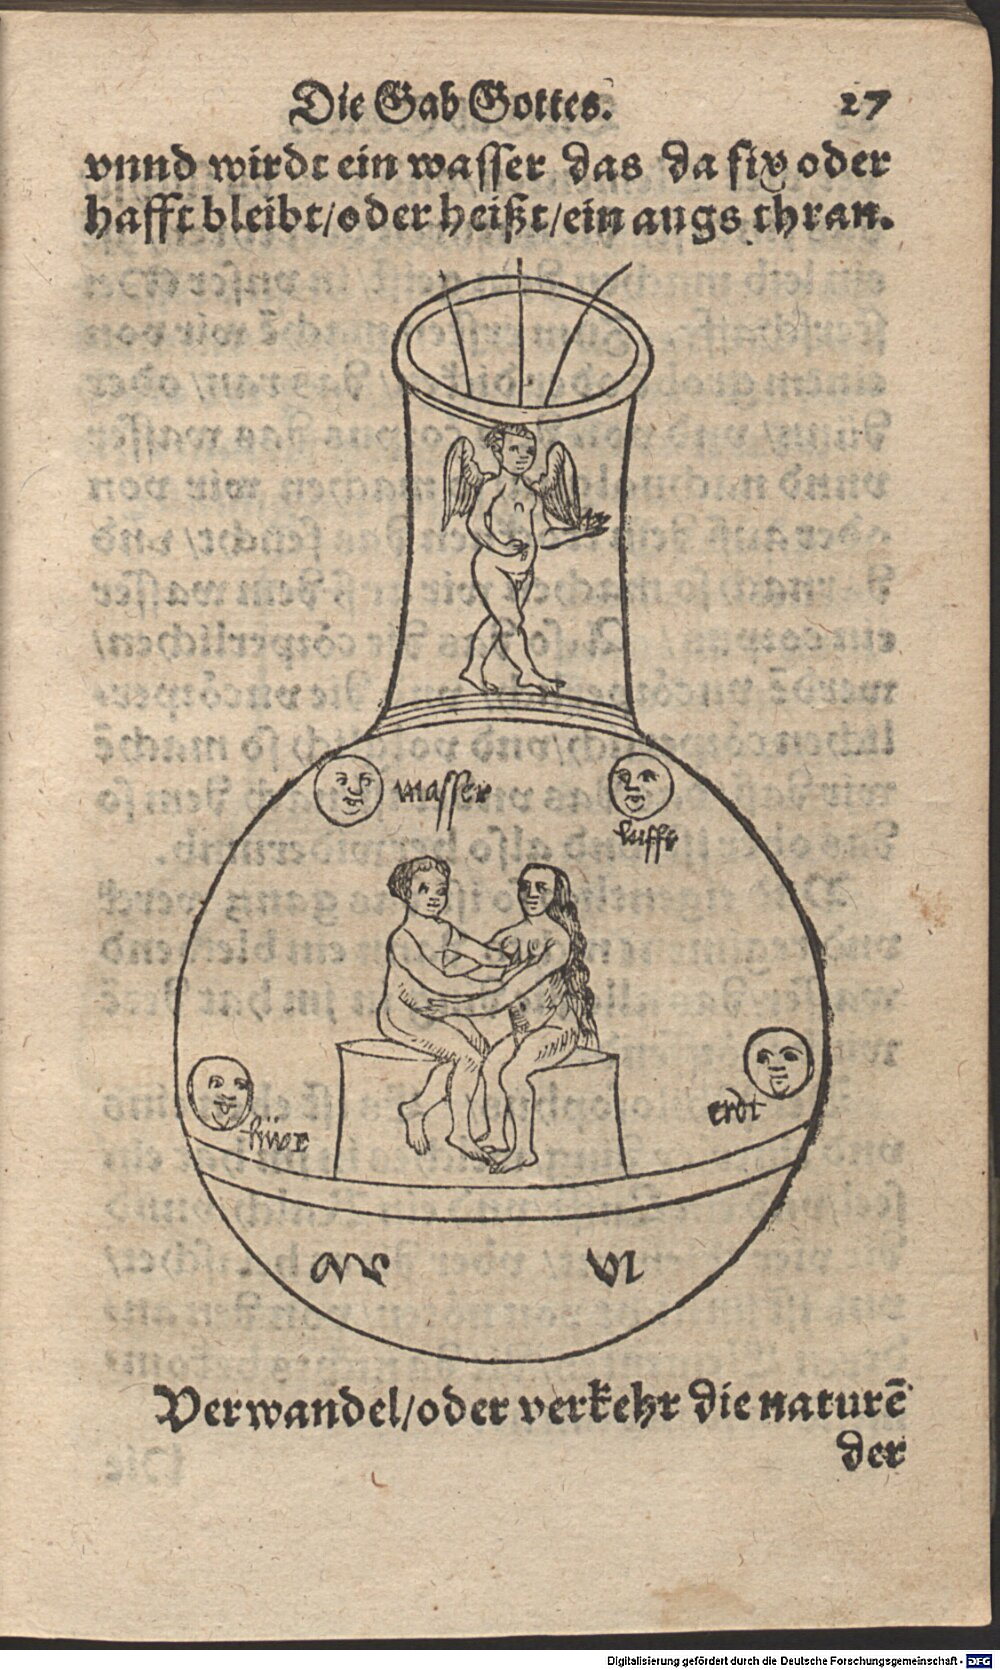 Die Gab Gottes. 27
vnnd wirdt ein wasser das da fix oder
hafft bleibt/oder heißt/ein augs thran.
wasser
lufft
erdt
füer
Verwandel/oder verkehr die naturē
der
Digitalisierung gefördert durch die Deutsche Forschungsgemeinschaft - DFG